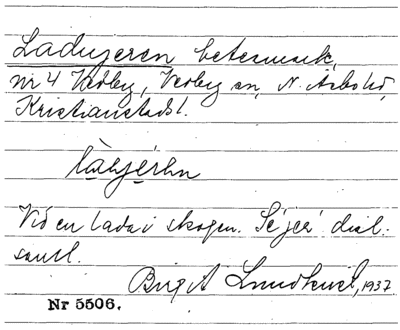 Ladugeren betesmark,
nr 4 Vedby, Vedby sn, N. Åsbo hd,
Kristianstads l.
Vid en lada i skogen. Se ger i dial.
saml.
Birgit Lundkvist, 1937
Nr 5506.